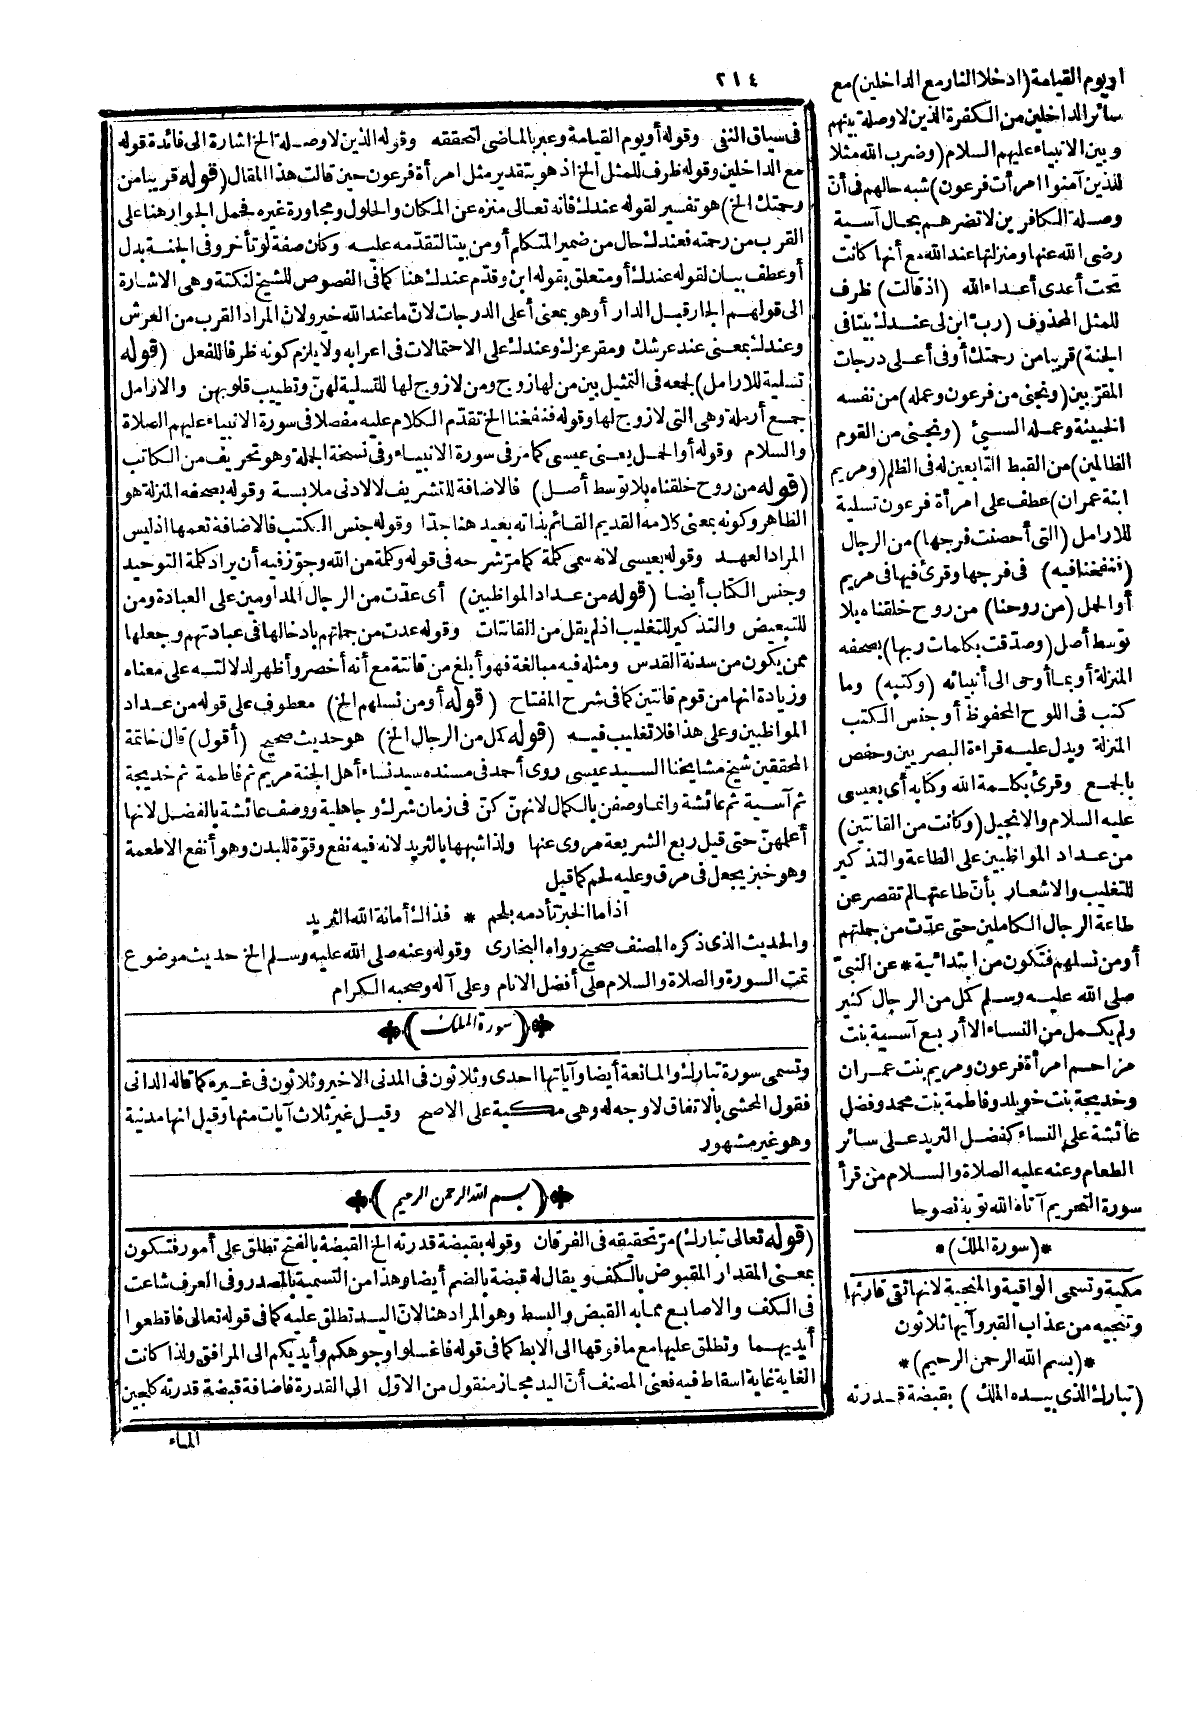 ٢١٤
أو يوم القيامة (ادخلا النار مع الداخلين) مع
سائر الداخلين من الكفرة الذين لا وصلة بينهم
وبين الانبياء عليهم السلام (وضرب الله مثلا
للذين آمنوا امرأت فرعون) شبه حالهم فى أن
وصلة الكافرين لا تضرهم بحال آسية
رضى الله عنها ومنزلتها عند الله مع أنها كانت
تحت أعدى أعداء الله (اذ قالت) ظرف
للمثل المحذوف (رب ابن لى عندك بيتا فى
الجنة) قريبا من رحمتك أو فى أعلى درجات
المقربين (ونجنى من فرعون وعمله) من نفسه
الخبيثة وعمله السيئ (ونجنى من القوم
الظالمين) من القبط التابعين له فى الظلم (ومريم
ابنة عمران) عطف على امرأة فرعون تسلية
للارامل (التى أحصنت فرجها) من الرجال
(فنفخنا فيه) فى فرجها وقرئ فيها فى مريم
أو الحمل (من روحنا) من روح خلقناه بلا
توسط أصل (وصدّقت بكلمات ربها) بصحفه
المنزلة أو بما أوحى الى أنبيائه (وكتبه) وما
كتب فى اللوح المحفوظ أو جنس الكتب
المنزلة ويدل عليه قراءة البصريين وحفص
بالجمع وقرئ بكلمة الله وكتابه أى بعيسى
عليه السلام والانجيل (وكانت من القانتين)
من عداد المواظبين على الطاعة والتذكير
للتغليب والاشعار بأن طاعتها لم تقصر عن
طاعة الرجال الكاملين حتى عدّت من جملتهم
أو من نسلهم فتكون من ابتدائية * عن النبىّ
صلى الله عليه وسلم كمل من الرجال كثير
ولم يكمل من النساء الا أربع آسية بنت
مزاحم امرأة فرعون ومريم بنت عمران
وخديجة بنت خويلد وفاطمة بنت محمد وفضل
عائشة على النساء كفضل الثريد على سائر
الطعام وعنه عليه الصلاة والسلام من قرأ
سورة التحريم آتاه الله توبة نصوحا
*(سورة الملك)*
مكية وتسمى الواقية والمنجية لانها تقى قارئها
وتنجيه من عذاب القبر وآيها ثلاثون
*(بسم الله الرحمن الرحيم)*
(تبارك الذى بيده الملك) بقبضة قدرته
فى سياق النفى وقوله أو يوم القيامة وعبر بالماضى لتحققه وقوله الذين لا وصلة الخ اشارة الى فائدة قوله
مع الداخلين وقوله ظرف للمثل الخ اذ هو بتقدير مثل امرأة فرعون حين قالت هذا المقال (قوله قريبا من
رحمتك الخ) هو تفسير لقوله عندك فانه تعالى منزه عن المكان والحلول ومجاورة غيره فجمل الجوار هنا على
القرب من رحمته فعندك حال من ضمير المتكلم أو من بيتا لتقدّمه عليه وكان صفة لو تأخر وفى الجنة بدل
أو عطف بيان لقوله عندك أو متعلق بقوله ابن وقدّم عندك هنا كما فى الفصوص للشيخ لنكتة وهى الاشارة
الى قولهم الجار قبل الدار أو هو بمعنى أعلى الدرجات لانّ ما عند الله خير ولانّ المراد القرب من العرش
وعندك بمعنى عند عرشك ومقر عزك وعندك على الاحتمالات فى اعرابه ولا يلزم كونه ظرفا للفعل (قوله
تسلية للارامل) لجمعه فى التمثيل بين من لها زوج ومن لا زوج لها للتسلية لهنّ وتطييب قلوبهن والارامل
جمع أرملة وهى التى لا زوج لها وقوله فنفخنا الخ تقدّم الكلام عليه مفصلا فى سورة الانبياء عليهم الصلاة
والسلام وقوله أو الحمل يعنى عيسى كما مرّ فى سورة الانبياء وفى نسخة الجملة وهو تحريف من الكاتب
(قوله من روح خلقناه بلا توسط أصل) فالاضافة للتشريف لا لادنى ملابسة وقوله بصحفه المنزلة هو
الظاهر وكونه بمعنى كلامه القديم القائم بذاته بعيد هنا جدّا وقوله جنس الكتب فالاضافة تعمها اذ ليس
المراد العهد وقوله بعيسى لانه سمى كلمة كما مرّ شرحه فى قوله وكلمة من الله وجوّز فيه أن يراد كلمة التوحيد
وجنس الكتاب أيضا (قوله من عداد المواظبين) أى عدّت من الرجال المداومين على العبادة ومن
للتبعيض والتذكير للتغليب اذ لم يقل من القانتات وقوله عدت من جملتهم بادخالها فى عبادتهم وجعلها
ممن يكون من سدنة القدس ومثله فيه مبالغة فهو أبلغ من قانتة مع أنه أخصر وأظهر لدلالته على معناه
وزيادة انها من قوم قانتين كما فى شرح المفتاح (قوله أو من نسلهم الخ) معطوف على قوله من عداد
المواظبين وعلى هذا فلا تغليب فيه (قوله كمل من الرجال الخ) هو حديث صحيح (أقول) قال خاتمة
المحققين شيخ مشايخنا السيد عيسى روى أحمد فى مسنده سيد نساء أهل الجنة مريم ثم فاطمة ثم خديجة
ثم آسية ثم عائشة وانما وصفن بالكمال لانهنّ كنّ فى زمان شرك وجاهلية ووصف عائشة بالفضل لانها
أعلمهنّ حتى قيل ربع الشريعة مروى عنها ولذا شبهها بالثريد لانه فيه نفع وقوّة للبدن وهو أنفع الاطعمة
وهو خبز يجعل فى مرق وعليه لحم كما قيل
اذا ما الخبز تأدمه بلحم * فذاك أمانة الله الثريد
والحديث الذى ذكره المصنف صحيح رواه البخارى وقوله وعنه صلى الله عليه وسلم الخ حديث موضوع
تمت السورة والصلاة والسلام على أفضل الانام وعلى آله وصحبه الكرام
(سورة الملك)
وتسمى سورة تبارك والمانعة أيضا وآياتها احدى وثلاثون فى المدنى الاخير وثلاثون فى غيره كما قاله الدانى
فقول المحشى بالاتفاق لا وجه له وهى مكية على الاصح وقيل غير ثلاث آيات منها وقيل انها مدنية
وهو غير مشهور
(بسم الله الرحمن الرحيم)
(قوله تعالى تبارك) مرّ تحقيقه فى الفرقان وقوله بقبضة قدرته الخ القبضة بالفتح تطلق على أمور فتكون
بمعنى المقدار المقبوض بالكف ويقال له قبضة بالضم أيضا وهذا من التسمية بالمصدر وفى العرف شاعت
فى الكف والاصابع مما به القبض والبسط وهو المراد هنا لانّ اليد تطلق عليه كما فى قوله تعالى فاقطعوا
أيديهما وتطلق عليها مع ما فوقها الى الابط كما فى قوله فاغسلوا وجوهكم وأيديكم الى المرافق ولذا كانت
الغاية غاية اسقاط فيه فعنى المصنف أنّ اليد مجاز منقول من الاوّل الى القدرة فاضافة قبضة قدرته كلجين
الماء